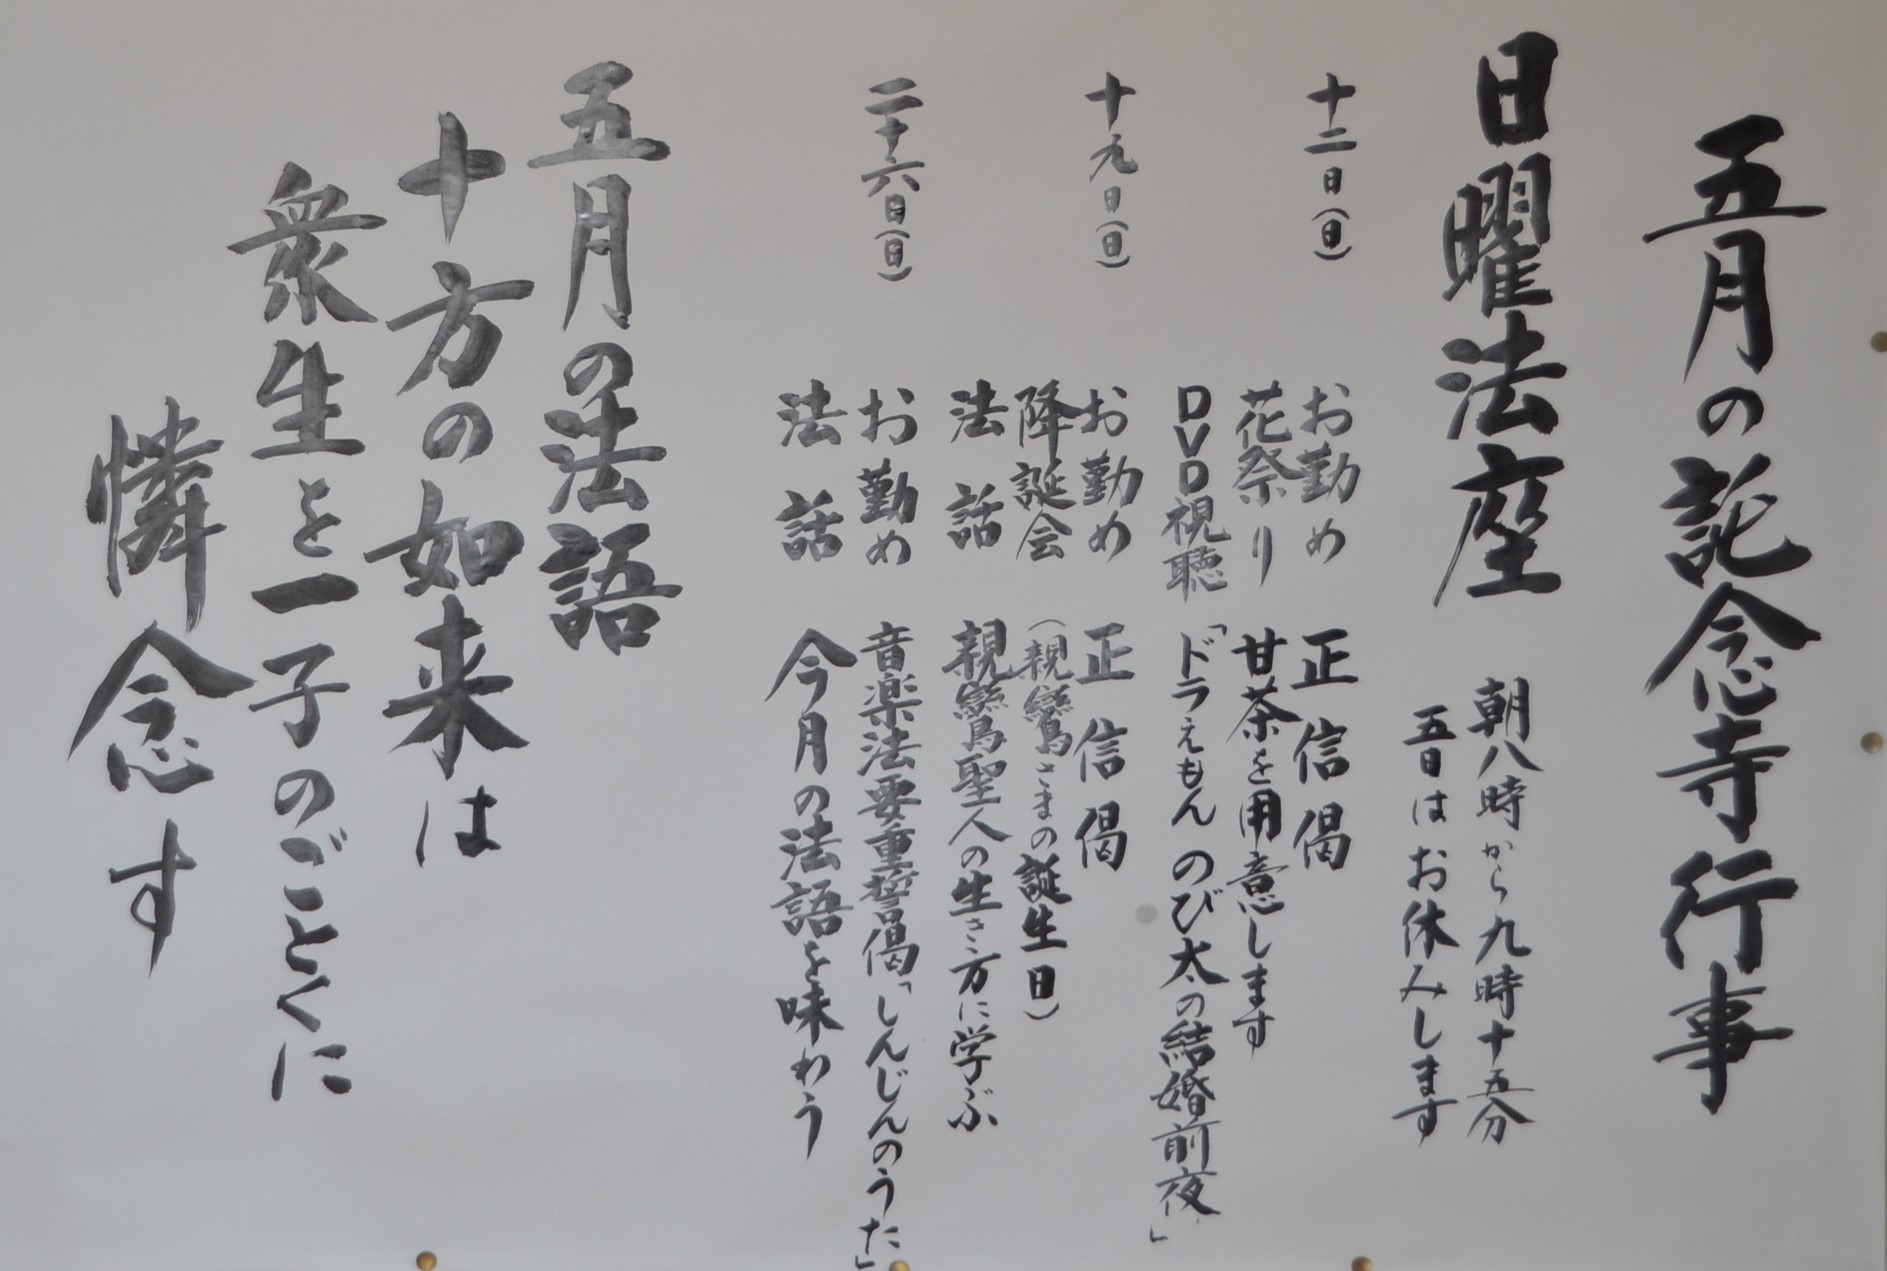 五月の託念寺行事
日曜法座
朝八時から九時十五分
五日はお休みします
十二日(日)
お勤め 正信偈
花祭り 甘茶を用意します
DVD視聴 「ドラえもん のび太の結婚前夜」
十九日(日)
お勤め 正信偈
降誕会 (親鸞さまの誕生日)
法話 親鸞聖人の生き方に学ぶ
二十六日(日)
お勤め 音楽法要重誓偈「しんじんのうた」
法話 今月の法語を味わう
五月の法語
十方の如来は
衆生を一子のごとくに
憐念す